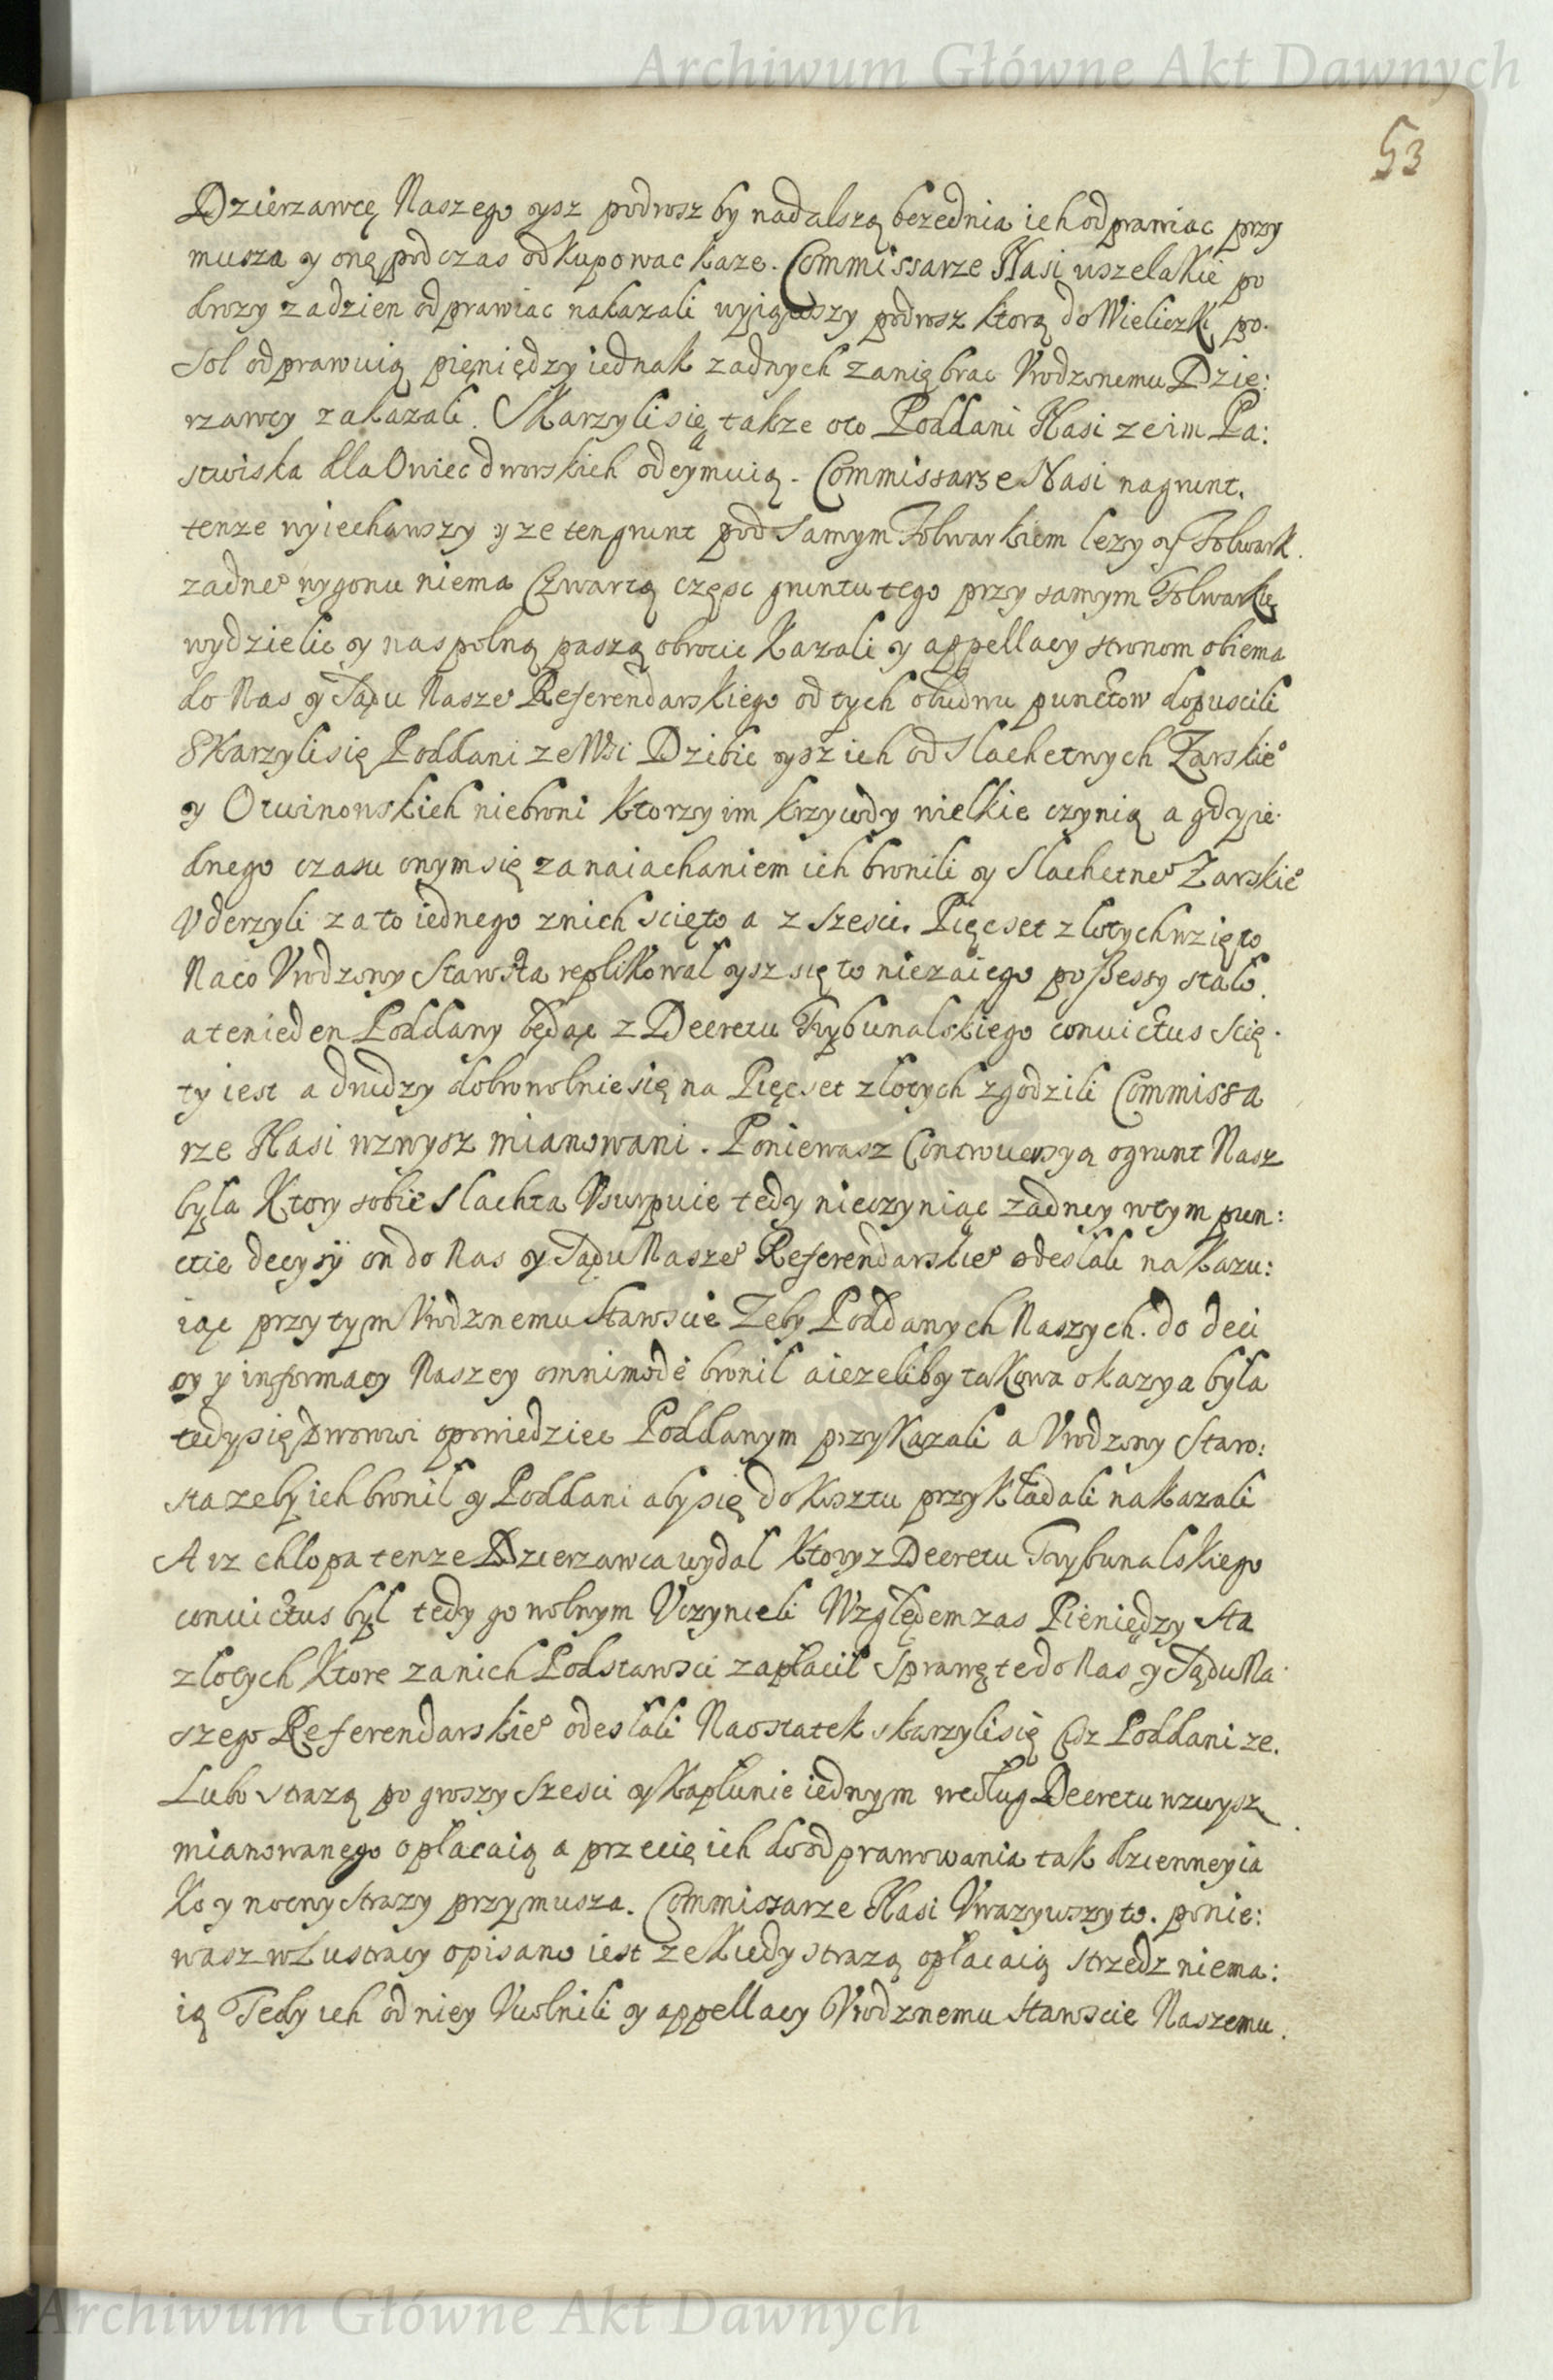 Archiwum Główne Akt Dawnych
53
Dzierzawcę Naszego ysz podrosz by nadalszą bezednia ich odprawiac przy
musza y onę podczas odkupowac kaze. Commissarze Nasi wszelakie po
drozy zadzien odprawiac nakazali wyiąwszy podrosz ktorą do Wieliczki po.
sol odprawuią pięniędzy iednak zadnych zanię brac Vrodzonemu Dzie:
rzawcy zakazali. Skarzyli się takze oto Poddani Nasi ze im Pa:
stwiska dla Owiec dworskich odeymuią. Commissarze Nasi nagrunt.
tenze wyiechawszy y ze ten grunt pod samym Folwarkiem lezy y Folwark.
zadneo wygonu niema Czwartą częsc gruntu tego przy samym Folwarku
wydzielic y naspolną paszą obrocic kazali y appellacy stronom obiema
do Nas y Sądu Naszeo Referendarskiego od tych obudwu punctow dopuscili
Skarzyli się Poddani ze Wsi Dzibic ysz ich od Slachetnych Zarskieo
y Otwinowskich niebroni ktorzy im krzywdy wielkie czynią a gdy ie.
dnego czasu onym się zanaiachaniem ich bronili y Slachetneo Zarskieo
Vderzyli zato iednego znich scięto a z szesci. Pięcset zlotych wzięto
Naco Vrodzony Starosta replikowal ysz się to niezaiego possessy stalo.
aten ieden Poddany będąc z Decretu Trybunalskiego convictus scię.
ty iest a drudzy dobrowolnie się na Pięcset zlotych zgodzili Commissa
rze Nasi wzwysz mianowani. Poniewasz Controversya ogrunt Nasz
byla Ktory sobie slachta Vsurpuie tedy nieczyniąc zadney wtym pun:
ctie decysÿ on do Nas y Sądu Naszeo Referendarskieo odeslali nakazu:
iąc przytym Vrodzonemu Staroscie Zeby Poddanych Naszych. do deci
sy y informacy Naszey omnimode bronil aiezeliby takowa okazya byla
tedy się Dworowi opowiedziec Poddanym przykazali a Vrodzony Staro:
sta zeby ich bronil y Poddani aby się do kosztu przykladali nakazali
A iz chlopa tenze Dzierzawca wydal ktory z Decretu Trybunalskiego
convictus byl tedy go wolnym Vczynieli Względem zas Pieniędzy sta
zlotych ktore zanich Podstarosci zaplacil Sprawę te do Nas y Sądu Na
szego Referendarskieo odeslali Naostatek skarzyli się Ciz Poddani ze.
Lubo strazą po groszy szesci y kaplunie iednym według Decretu wzwysz
mianowanego oplacaią a przecię ich do odprawowania tak dzienney ia
ko y nocny strazy przymusza. Commissarze Nasi Vwazywszy to. ponie:
wasz wLustracy opisano iest ze kiedy strazą oplacaią strzedz niema:
ią Tedy ich od niey Vwolnili y appellacy Vrodzonemu Staroscie Naszemu.
Archiwum Główne Akt Dawnych